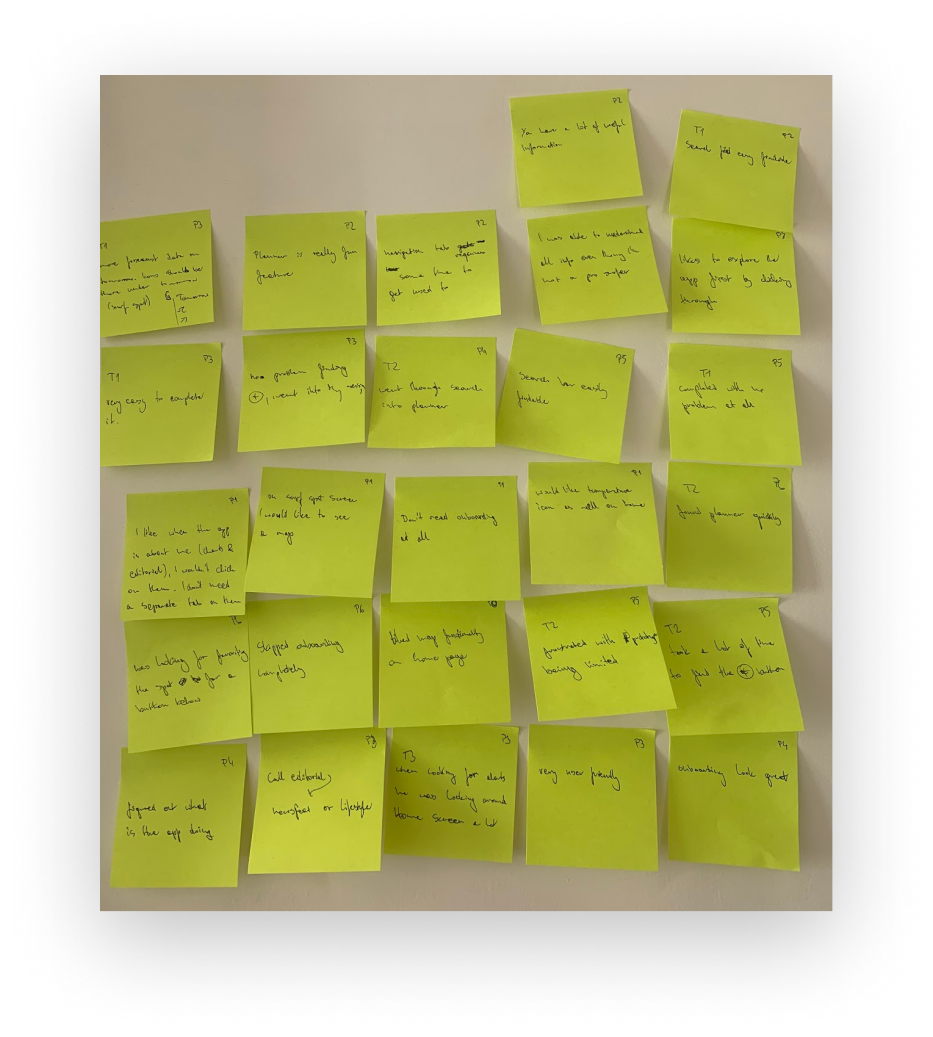 P2
You have a lot of useful
information
T1 P2
Search easy findable
P3
T1
more forecast data on
tomorrow. hours should be
there under tomorrow
(surf spot) Tomorrow
P2
Planner is really fun
feature
P2
navigation tabs
some time to
get used to
I was able to understand
all info even being I'm
not a pro surfer
likes to explore the
app first by clicking
through
P3
T1
very easy to complete
it.
P3
no problem finding
+, went into try
P4
T2
went through search
into planner
P5
Search bar easily
findable
P5
T1
completed with no
problem at all
P1
I like when the app
is about me (charts &
editorial), I wouldn't click
on them. I don't need
a separate tab on them
P1
on surf spot screen
I would like to see
a map
P1
Don't need onboarding
at all
P1
would like temperature
icon as well on home
T2
found planner quickly
P6
was looking for favoriting
the spot for a
button below
P6
Skipped onboarding
completely
liked map functionality
on home page
P5
T2
frustrated with prototype
being limited
P5
T2
took a lot of time
to find the + button
P4
figured out what
is the app doing
Call editorial
newsfeed or lifestyle
P3
T3
when looking for alerts
he was looking around
home screen a lot
P3
very user friendly
P4
onboarding look great